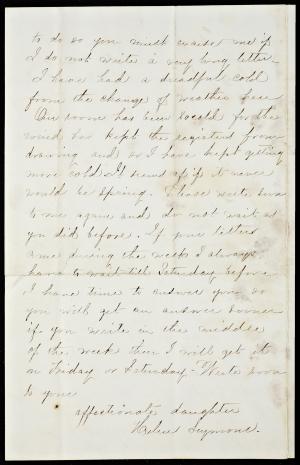 to do so you must excuse me if
I do not write a very long letter.
I have had a dreadful cold
from the change of weather here
Our room has been locald for the
wind has kept the registers from
drawing and so I have kept getting
more cold. It seems as if it never
would be Spring. Please write soon
to me again and do not wait as
you did before. If your letters
come during the week I always
have to wait till Saturday before
I have time to answer you so
you will get an answer sooner
if you write in the middle
of the week then I will get it
on Friday or Saturday. Write soon
to your
affectionate daughter
Helen Seymour.